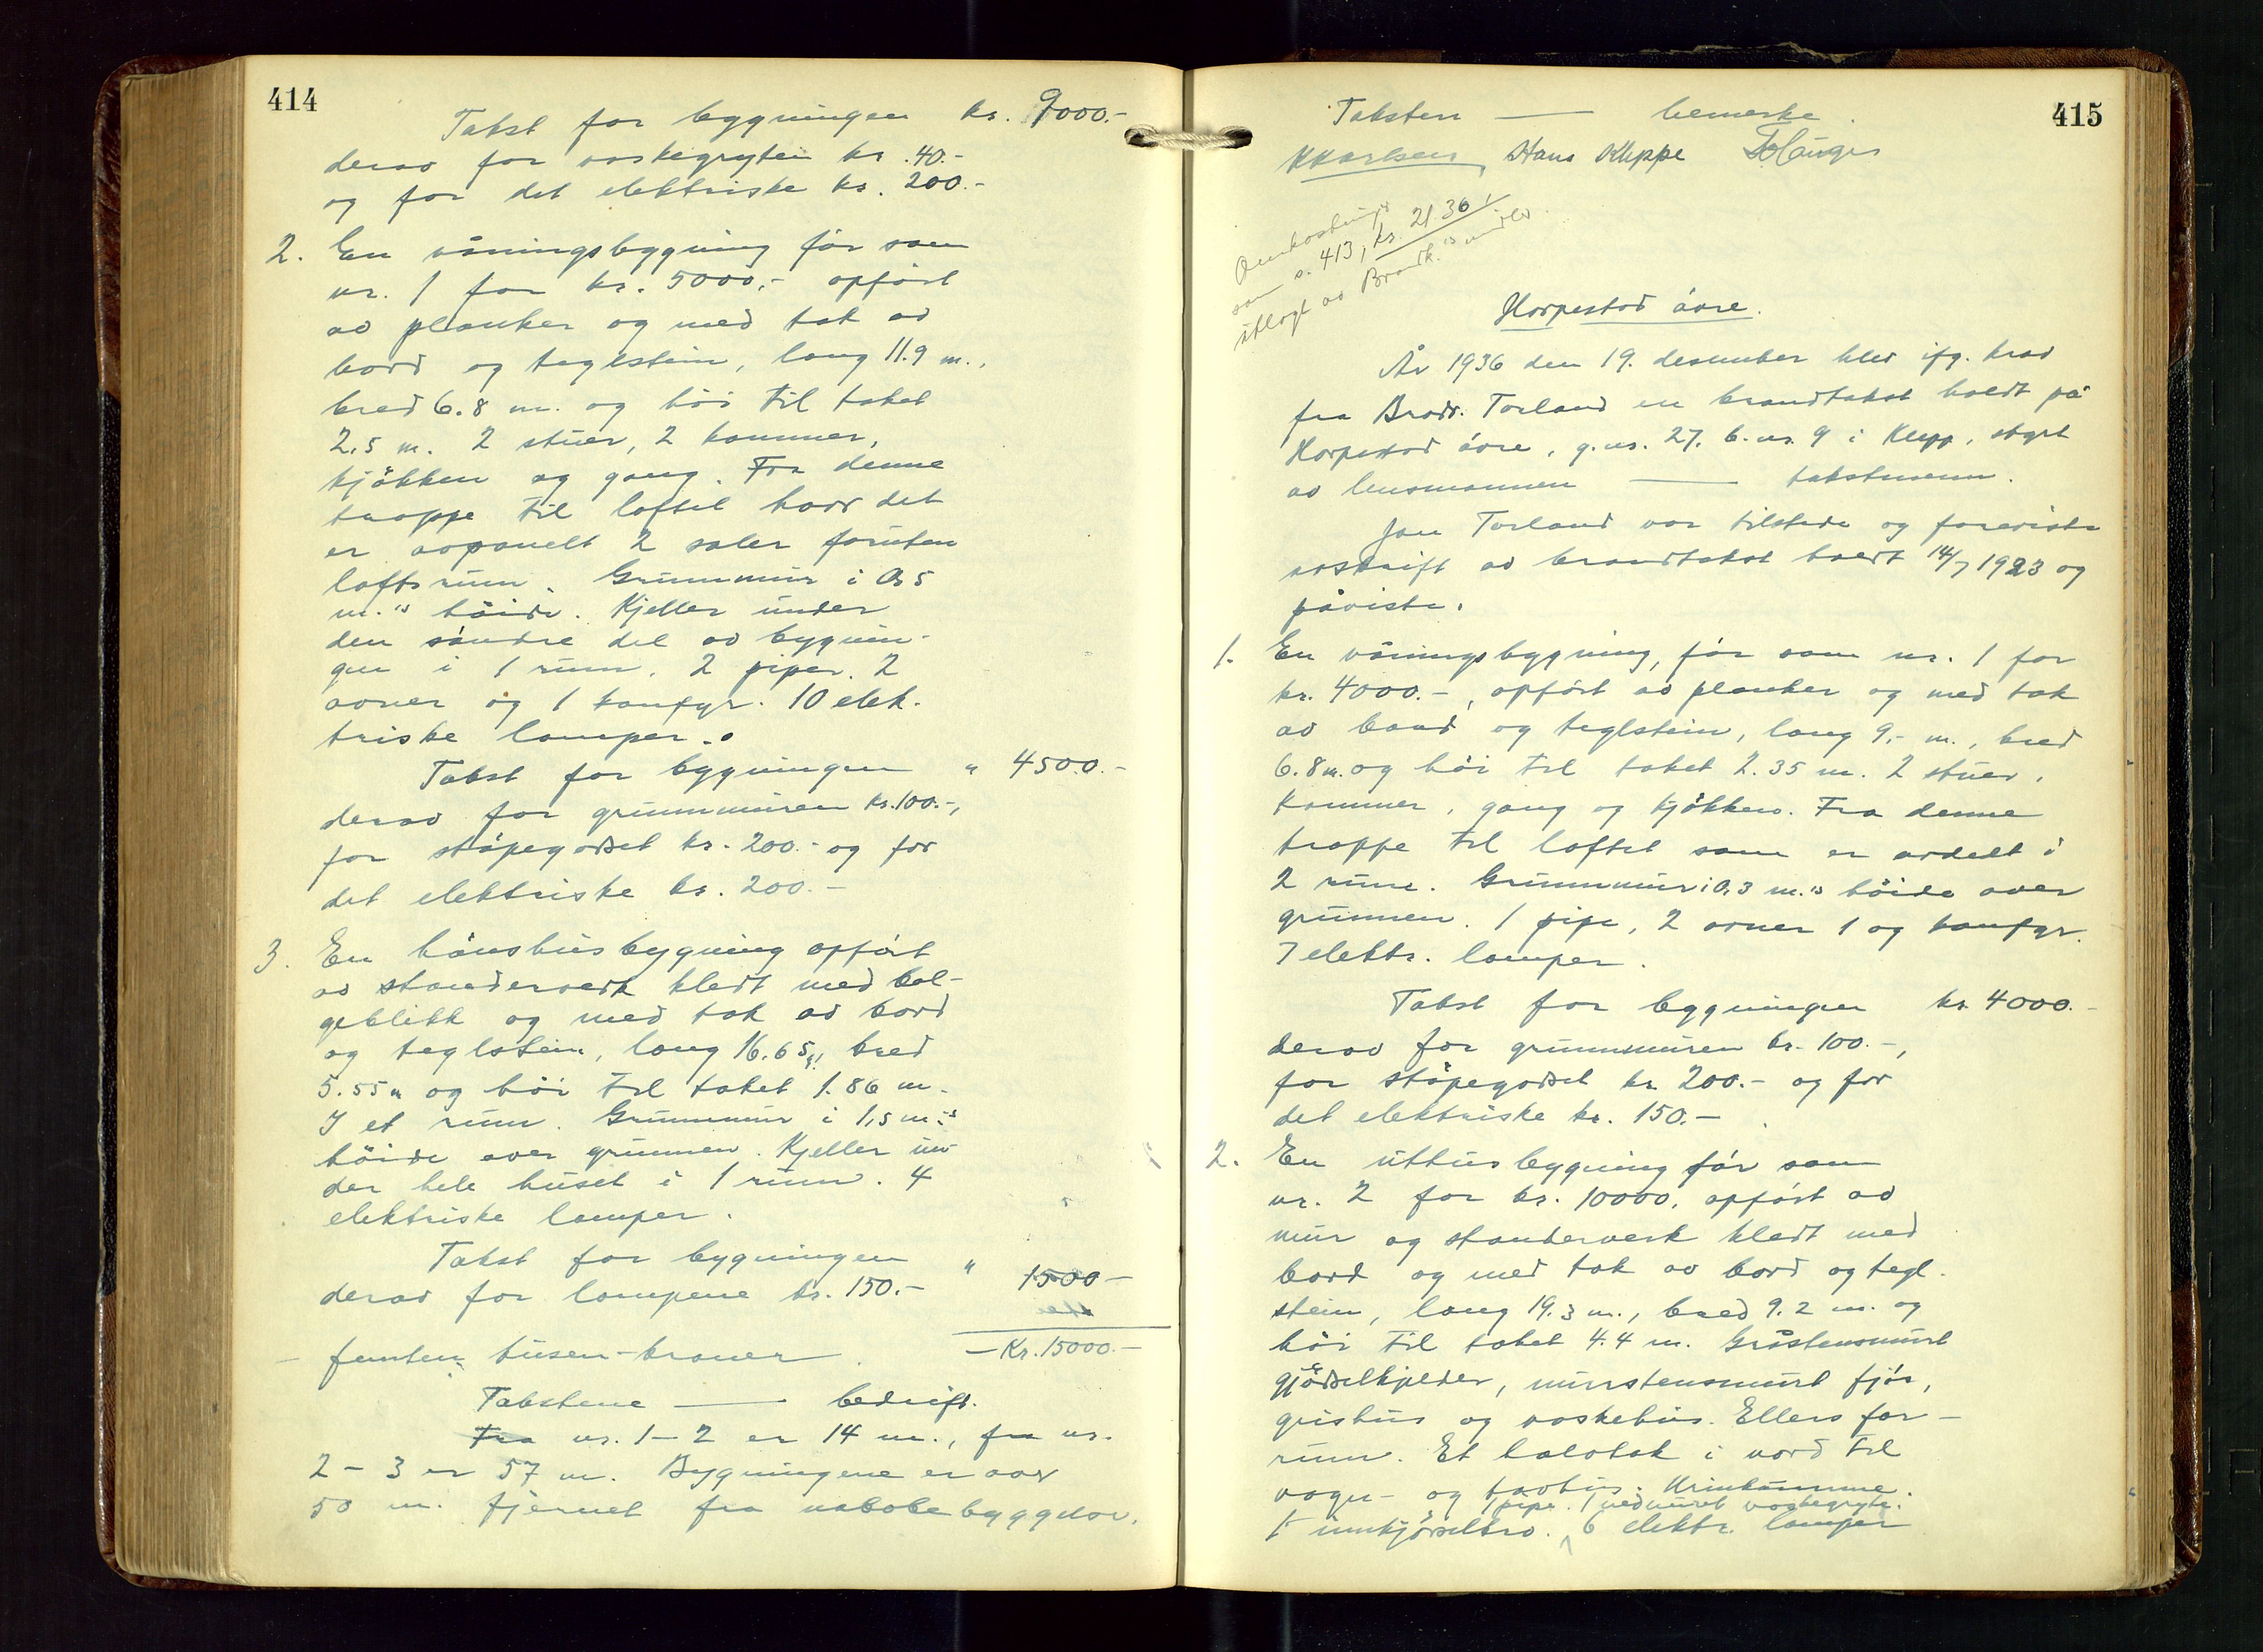 414
Takst for bygningen kr. 9000.-
derav for vaskegryten kr. 40.-
og for det elektriske kr. 200.-
2. En våningsbygning før som
nr. 1 for kr. 5000.- opført
av planker og med tak av
bord og teglstein, lang 11.9 m.,
bred 6.8 m. og høi til taket
2.5 m. 2 stuer, 2 kammer,
kjøkken og gang. Fra denne
trappe til loftet hvor det
er avpanelt 2 saler foruten
loftsrum. Grunnmur i 0,5
m.'s høide. Kjeller under
den søndre del av bygnin-
gen i 1 rum. 2 piper. 2
ovner og 1 komfyr. 10 elek-
triske lamper.
Takst for bygningen " 4500.-
derav for grunnmuren kr. 100.-,
for støpegodset kr. 200.- og for
det elektriske kr. 200.-
3. En hønshusbygning opført
av standerverk kledt med bøl-
geblikk og med tak av bord
og teglstein, lang 16.65, bred
5.55 m og høi til taket 1.86 m.
I et rum. Grunnmur i 1,5 m.'s
høide over grunnen. Kjeller un-
der hele huset i 1 rum. 4
elektriske lamper.
Takst for bygningen " 1500-
derav for lampene kr. 150.-
- femten tusen-kroner. - Kr. 15000.-
Takstene — bedrift.
Fra nr. 1-2 er 14 m., fra nr.
2-3 er 57 m. Bygningene er over
50 m. fjernet fra nabobebyggelse.
415
Taksten — bemerke.
K Karlsen, Hans Kleppe
Omkostninger
som s. 413, kr. 21.30
utlagt av Brandk.'s midler.
Horpestad øvre.
År 1936 den 19. desember blev ifg. krav
fra Brødr. Torland en brandtakst holdt på
Horpestad øvre, g.nr. 27, b.nr. 9 i Klepp, styrt
av lensmannen — takstmenn.
Jan Torland var tilstede og foreviste
avskrift av brandtakst holdt 14/7 1923 og
påviste.
1. En våningsbygning, før som nr. 1 for
kr. 4000.-, opført av planker og med tak
av bord og teglstein, lang 9,- m., bred
6.8 m. og høi til taket 2.35 m. 2 stuer,
kammer, gang og kjøkken. Fra denne
trappe til loftet som er avdelt i
2 rum. Grunnmur i 0,3 m.'s høide over
grunnen. 1 pipe, 2 ovner 1 og komfyr.
7 elektr. lamper.
Takst for bygningen kr. 4000.-
derav for grunnmuren kr. 100.-,
for støpegodset kr 200.- og for
det elektriske kr. 150.-
2. En uthusbygning før som
nr. 2 for kr. 10000. opført av
mur og standerverk kledt med
bord og med tak av bord og tegl-
stein, lang 19.3 m., bred 9.2 m. og
høi til taket 4.4 m. Gråstensmurt
gjødselkjelder, murstensmurt fjøs,
grishus og vaskehus. Ellers for-
rum. Et halvtak i nord til
vogn- og torvhus. Urinkumme.
1 pipe. 1 nedmuret vaskegryte.
1 innkjørselbro. 6 elektr. lamper